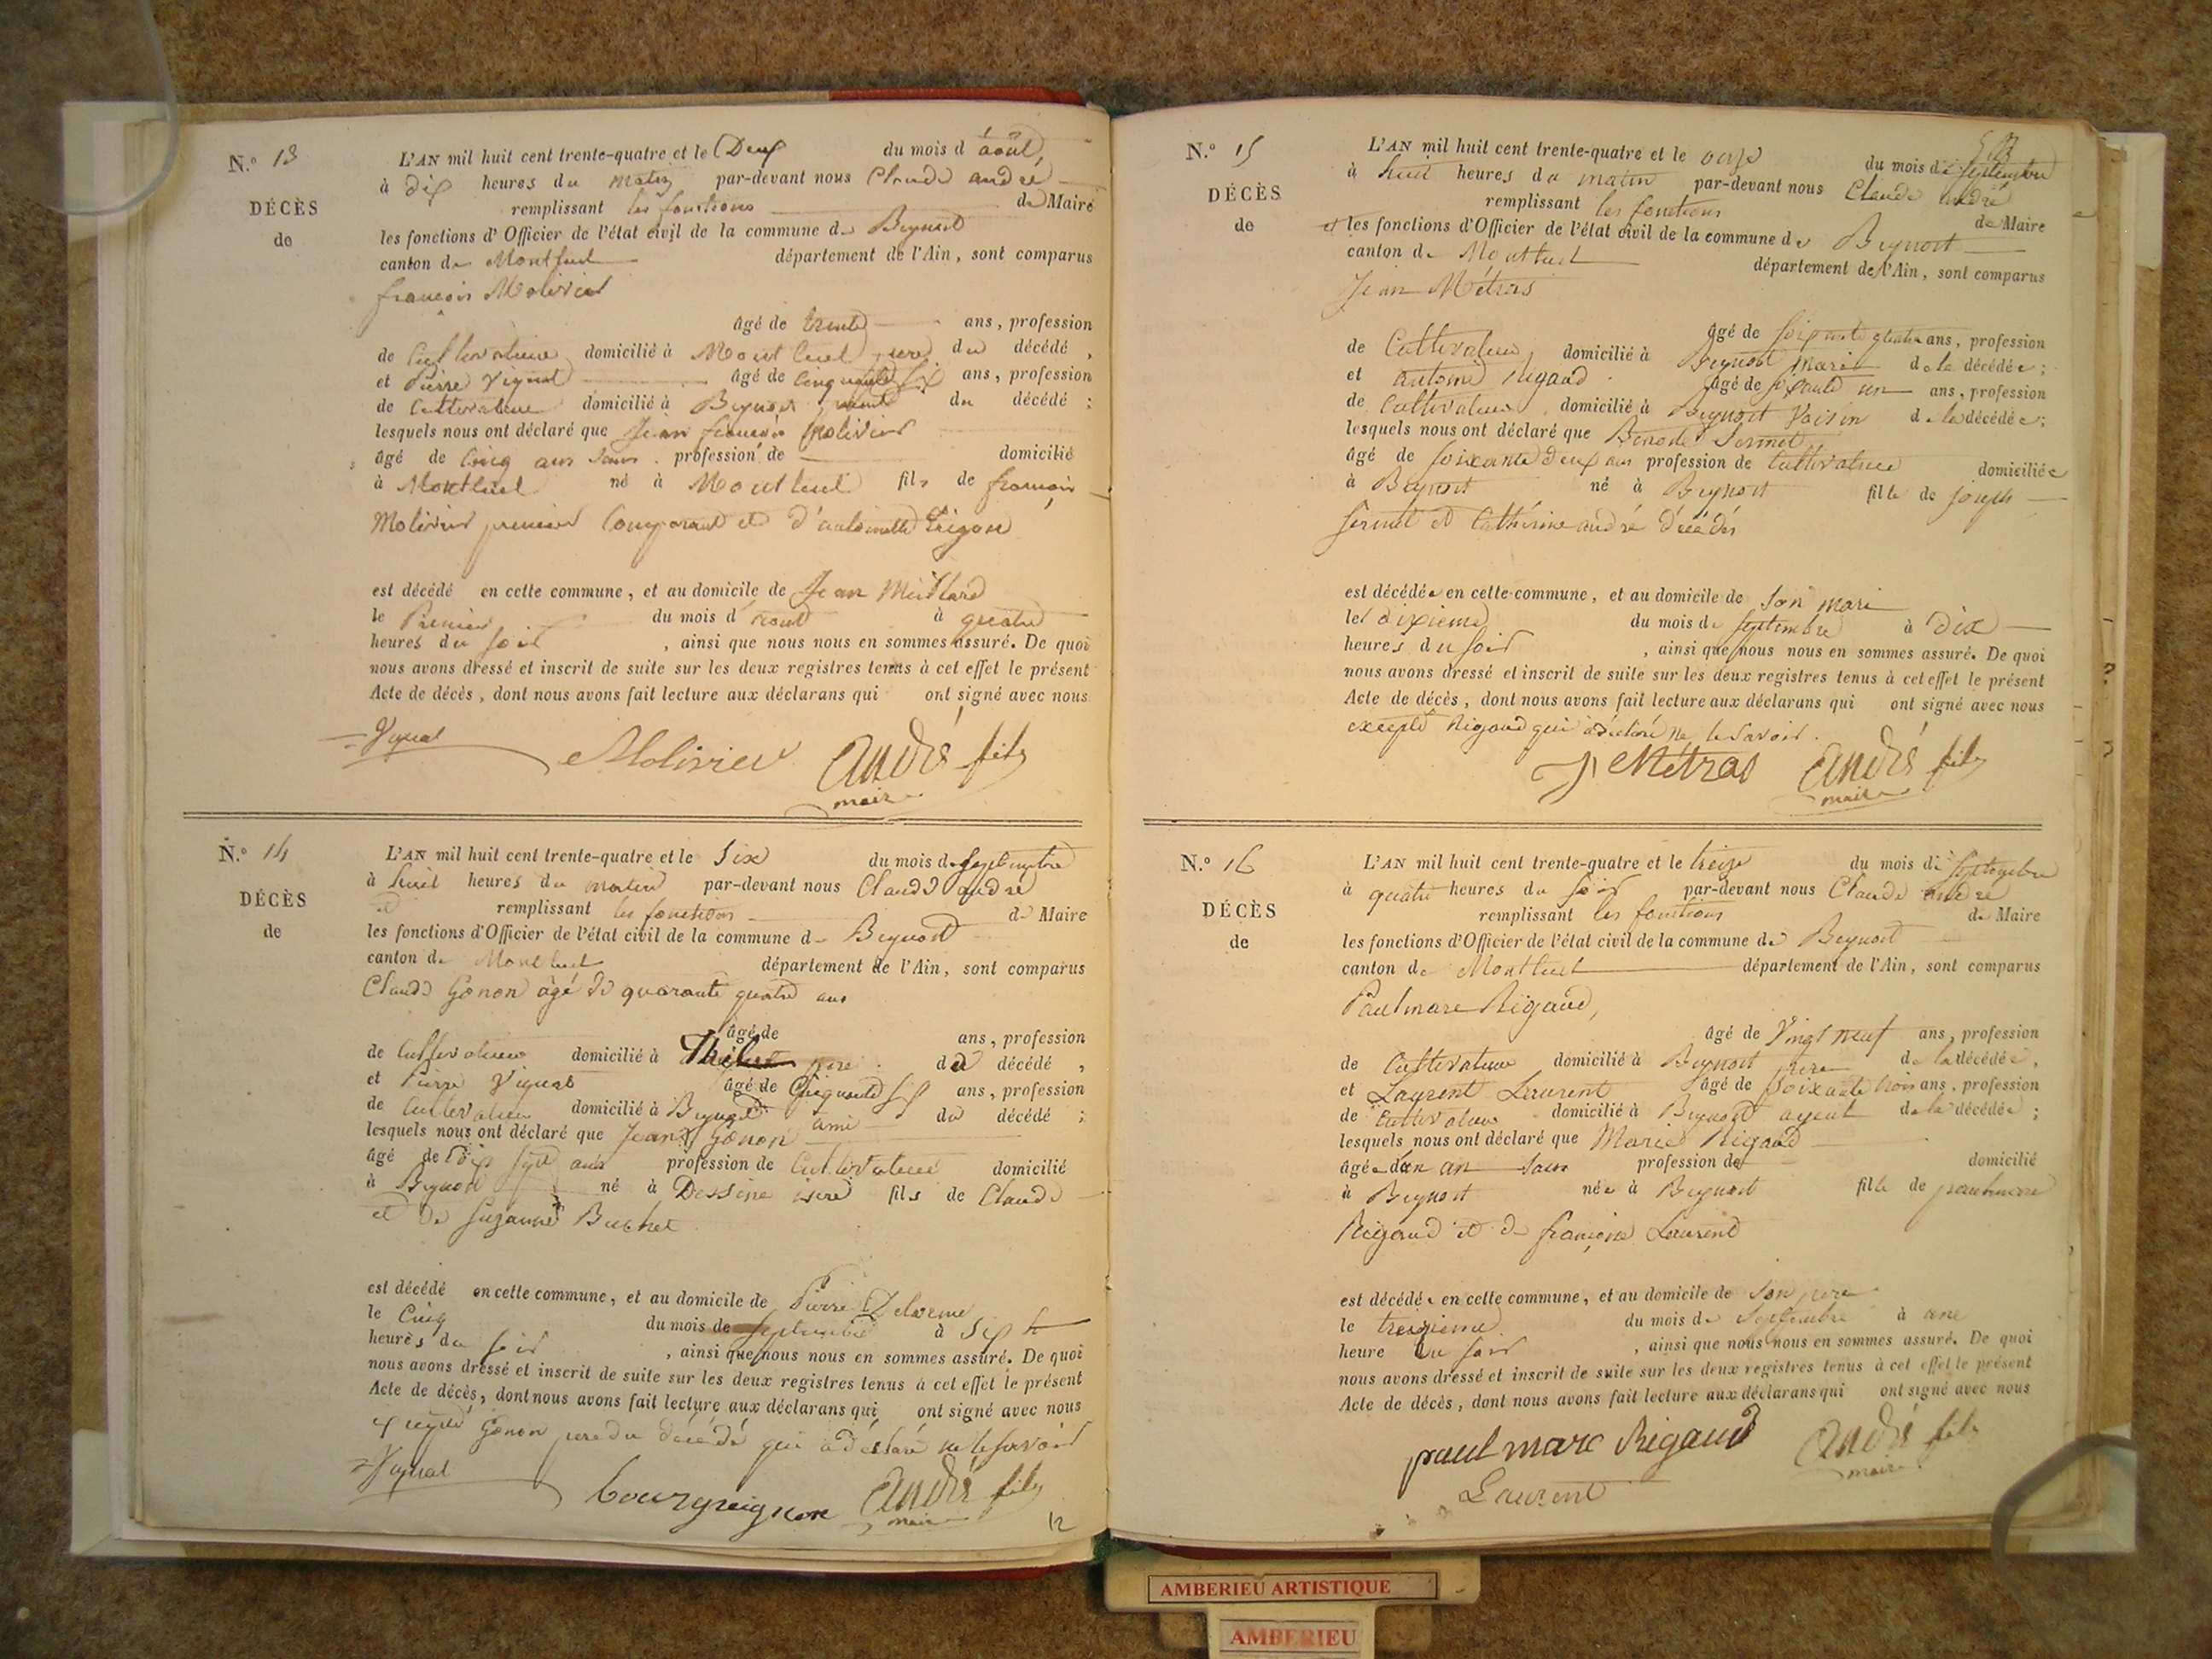 N.º 13
DÉCÈS
de
L'AN mil huit cent trente-quatre et le Deux du mois d'août
à dix heures du matin par-devant nous Claude andré
remplissant les fonctions de Maire
les fonctions d'Officier de l'état civil de la commune de Beynost
canton de Montluel département de l'Ain, sont comparus
françois Molivier
âgé de trente ans, profession
de Cultivateur domicilié à Montluel père du décédé,
et Pierre Vignat âgé de Cinquante six ans, profession
de Cultivateur domicilié à Beynost du décédé ;
lesquels nous ont déclaré que Jean françois Molivier
âgé de Cinq ans Sans profession de domicilié
à Montluel né à Montluel fils de françois
Molivier premier Comparant et d'antoinette
est décédé en cette commune, et au domicile de Jean
le Premier du mois d'aout à quatre
heures du soir, ainsi que nous nous en sommes assuré. De quoi
nous avons dressé et inscrit de suite sur les deux registres tenus à cet effet le présent
Acte de décès, dont nous avons fait lecture aux déclarans qui ont signé avec nous
Vignat Molivier André fils
maire
N.º 14
DÉCÈS
de
L'AN mil huit cent trente-quatre et le Six du mois de Septembre
à huit heures du matin par-devant nous Claude andré
et remplissant les fonctions de Maire
les fonctions d'Officier de l'état civil de la commune de Beynost
canton de Montluel département de l'Ain, sont comparus
Claude Gonon âgé de quarante quatre ans
âgé de ans, profession
de Cultivateur domicilié à père du décédé,
et Pierre Vignat âgé de Cinquante six ans, profession
de Cultivateur domicilié à Beynost ami du décédé ;
lesquels nous ont déclaré que Jean Gonon
âgé de dix sept ans profession de Cultivateur domicilié
à Beynost né à Dessine isere fils de Claude
et de Suzanne Buchet
est décédé en cette commune, et au domicile de Pierre Delorme
le Cinq du mois de septembre à Sept
heures du soir, ainsi que nous nous en sommes assuré. De quoi
nous avons dressé et inscrit de suite sur les deux registres tenus à cet effet le présent
Acte de décès, dont nous avons fait lecture aux déclarans qui ont signé avec nous
excepté Gonon père du décédé qui a déclaré ne le savoir
Vignat Bourguignon André fils
maire
12
N.º 15
DÉCÈS
de
L'AN mil huit cent trente-quatre et le onze du mois de septembre
à huit heures du matin par-devant nous Claude andré
remplissant les fonctions de Maire
et les fonctions d'Officier de l'état civil de la commune de Beynost
canton de Montluel département de l'Ain, sont comparus
Jean Métras
âgé de soixante quatre ans, profession
de Cultivateur domicilié à Beynost mari de la décédée ;
et antoine rigaud âgé de soixante un ans, profession
de Cultivateur, domicilié à Beynost Voisin de la décédée ;
lesquels nous ont déclaré que Benoite Sermet
âgé de soixante deux ans profession de Cultivateur domiciliée
à Beynost né à Beynost fille de joseph
Sermet et Cathérine andré décédés
est décédée en cette commune, et au domicile de son mari
le dixieme du mois de septembre à dix
heures du soir, ainsi que nous nous en sommes assuré. De quoi
nous avons dressé et inscrit de suite sur les deux registres tenus à cet effet le présent
Acte de décès, dont nous avons fait lecture aux déclarans qui ont signé avec nous
excepté Rigaud qui a déclaré ne le savoir.
J Métras André fils
maire
N.º 16
DÉCÈS
de
L'AN mil huit cent trente-quatre et le treize du mois de septembre
à quatre heures du soir par-devant nous Claude andré
remplissant les fonctions de Maire
les fonctions d'Officier de l'état civil de la commune de Beynost
canton de Montluel département de l'Ain, sont comparus
Paul marc Rigaud,
âgé de Vingt neuf ans, profession
de Cultivateur domicilié à Beynost père de la décédée,
et Laurent Laurent âgé de soixante trois ans, profession
de Cultivateur domicilié à Beynost ayeul de la décédée ;
lesquels nous ont déclaré que Marie Rigaud
âgée d'un an Sans profession de domicilié
à Beynost née à Beynost fille de paul marc
Rigaud et de françoise Laurent
est décédée en cette commune, et au domicile de son père
le treizieme du mois de Septembre à une
heure du soir, ainsi que nous nous en sommes assuré. De quoi
nous avons dressé et inscrit de suite sur les deux registres tenus à cet effet le présent
Acte de décès, dont nous avons fait lecture aux déclarans qui ont signé avec nous
paul marc Rigaud André fils
maire
Laurent
AMBERIEU ARTISTIQUE
AMBERIEU